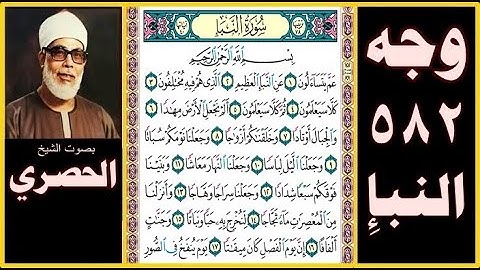 وجه
٥٨٢
النبإِ
سُورَةُ النَّبَإِ
بِسْمِ ٱللَّهِ ٱلرَّحْمَٰنِ ٱلرَّحِيمِ
عَمَّ يَتَسَآءَلُونَ ١ عَنِ ٱلنَّبَإِ ٱلْعَظِيمِ ٢ ٱلَّذِى هُمْ فِيهِ مُخْتَلِفُونَ ٣
كَلَّا سَيَعْلَمُونَ ٤ ثُمَّ كَلَّا سَيَعْلَمُونَ ٥ أَلَمْ نَجْعَلِ ٱلْأَرْضَ مِهَٰدًا ٦
وَٱلْجِبَالَ أَوْتَادًا ٧ وَخَلَقْنَٰكُمْ أَزْوَٰجًا ٨ وَجَعَلْنَا نَوْمَكُمْ سُبَاتًا
٩ وَجَعَلْنَا ٱلَّيْلَ لِبَاسًا ١٠ وَجَعَلْنَا ٱلنَّهَارَ مَعَاشًا ١١ وَبَنَيْنَا
فَوْقَكُمْ سَبْعًا شِدَادًا ١٢ وَجَعَلْنَا سِرَاجًا وَهَّاجًا ١٣ وَأَنزَلْنَا
مِنَ ٱلْمُعْصِرَٰتِ مَآءً ثَجَّاجًا ١٤ لِّنُخْرِجَ بِهِۦ حَبًّا وَنَبَاتًا ١٥ وَجَنَّٰتٍ
أَلْفَافًا ١٦ إِنَّ يَوْمَ ٱلْفَصْلِ كَانَ مِيقَٰتًا ١٧ يَوْمَ يُنفَخُ فِى ٱلصُّورِ
بصوت الشيخ
الحصري